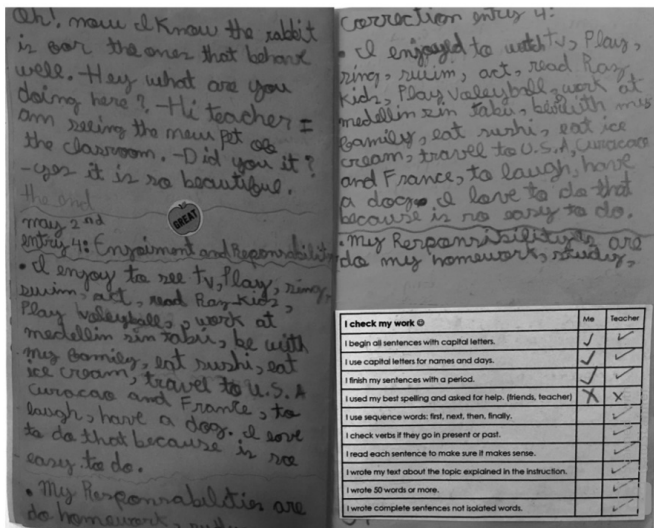 Oh!. now I Know the rabbit
is for the ones that behave
well. -Hey what are you
doing here?, -Hi teacher I
am seeing the new pet of
the classroom. -Did you it?
-yes it is so beautiful.
the end
GREAT
may 2nd
entry 4: Enjoiment and Reponsability
• I enjoy to see tv, Play, sing,
swim, art, read Raz Kids,
Play valleyball, work at
medellin sin tabu, be with
my family, eat sushi, eat
ice cream, travel to U.S.A
curacao and France, to
laugh, have a dog. I love
to do that because is so
easy to do.
• My Responsabilities are
do homework,
Correction entry 4:
• I enjoyed to watch tv, Play,
sing, swim, art, read Raz
Kids, Play valleyball, work at
medellin sin tabu, be with my
family, eat sushi, eat ice
cream, travel to U.S.A, curacao
and France, to laugh, have
a dog. I love to do that
because is so easy to do.
• My Responsibilitys are
do my homework, study,
I check my work ☺ Me Teacher
I begin all sentences with capital letters. ✓ ✓
I use capital letters for names and days. ✓ ✓
I finish my sentences with a period. ✓ ✓
I used my best spelling and asked for help. (friends, teacher) X X
I use sequence words: first, next, then, finally. ✓
I check verbs if they go in present or past. ✓
I read each sentence to make sure it makes sense. ✓
I wrote my text about the topic explained in the instruction. ✓
I wrote 50 words or more. ✓
I wrote complete sentences not isolated words. ✓